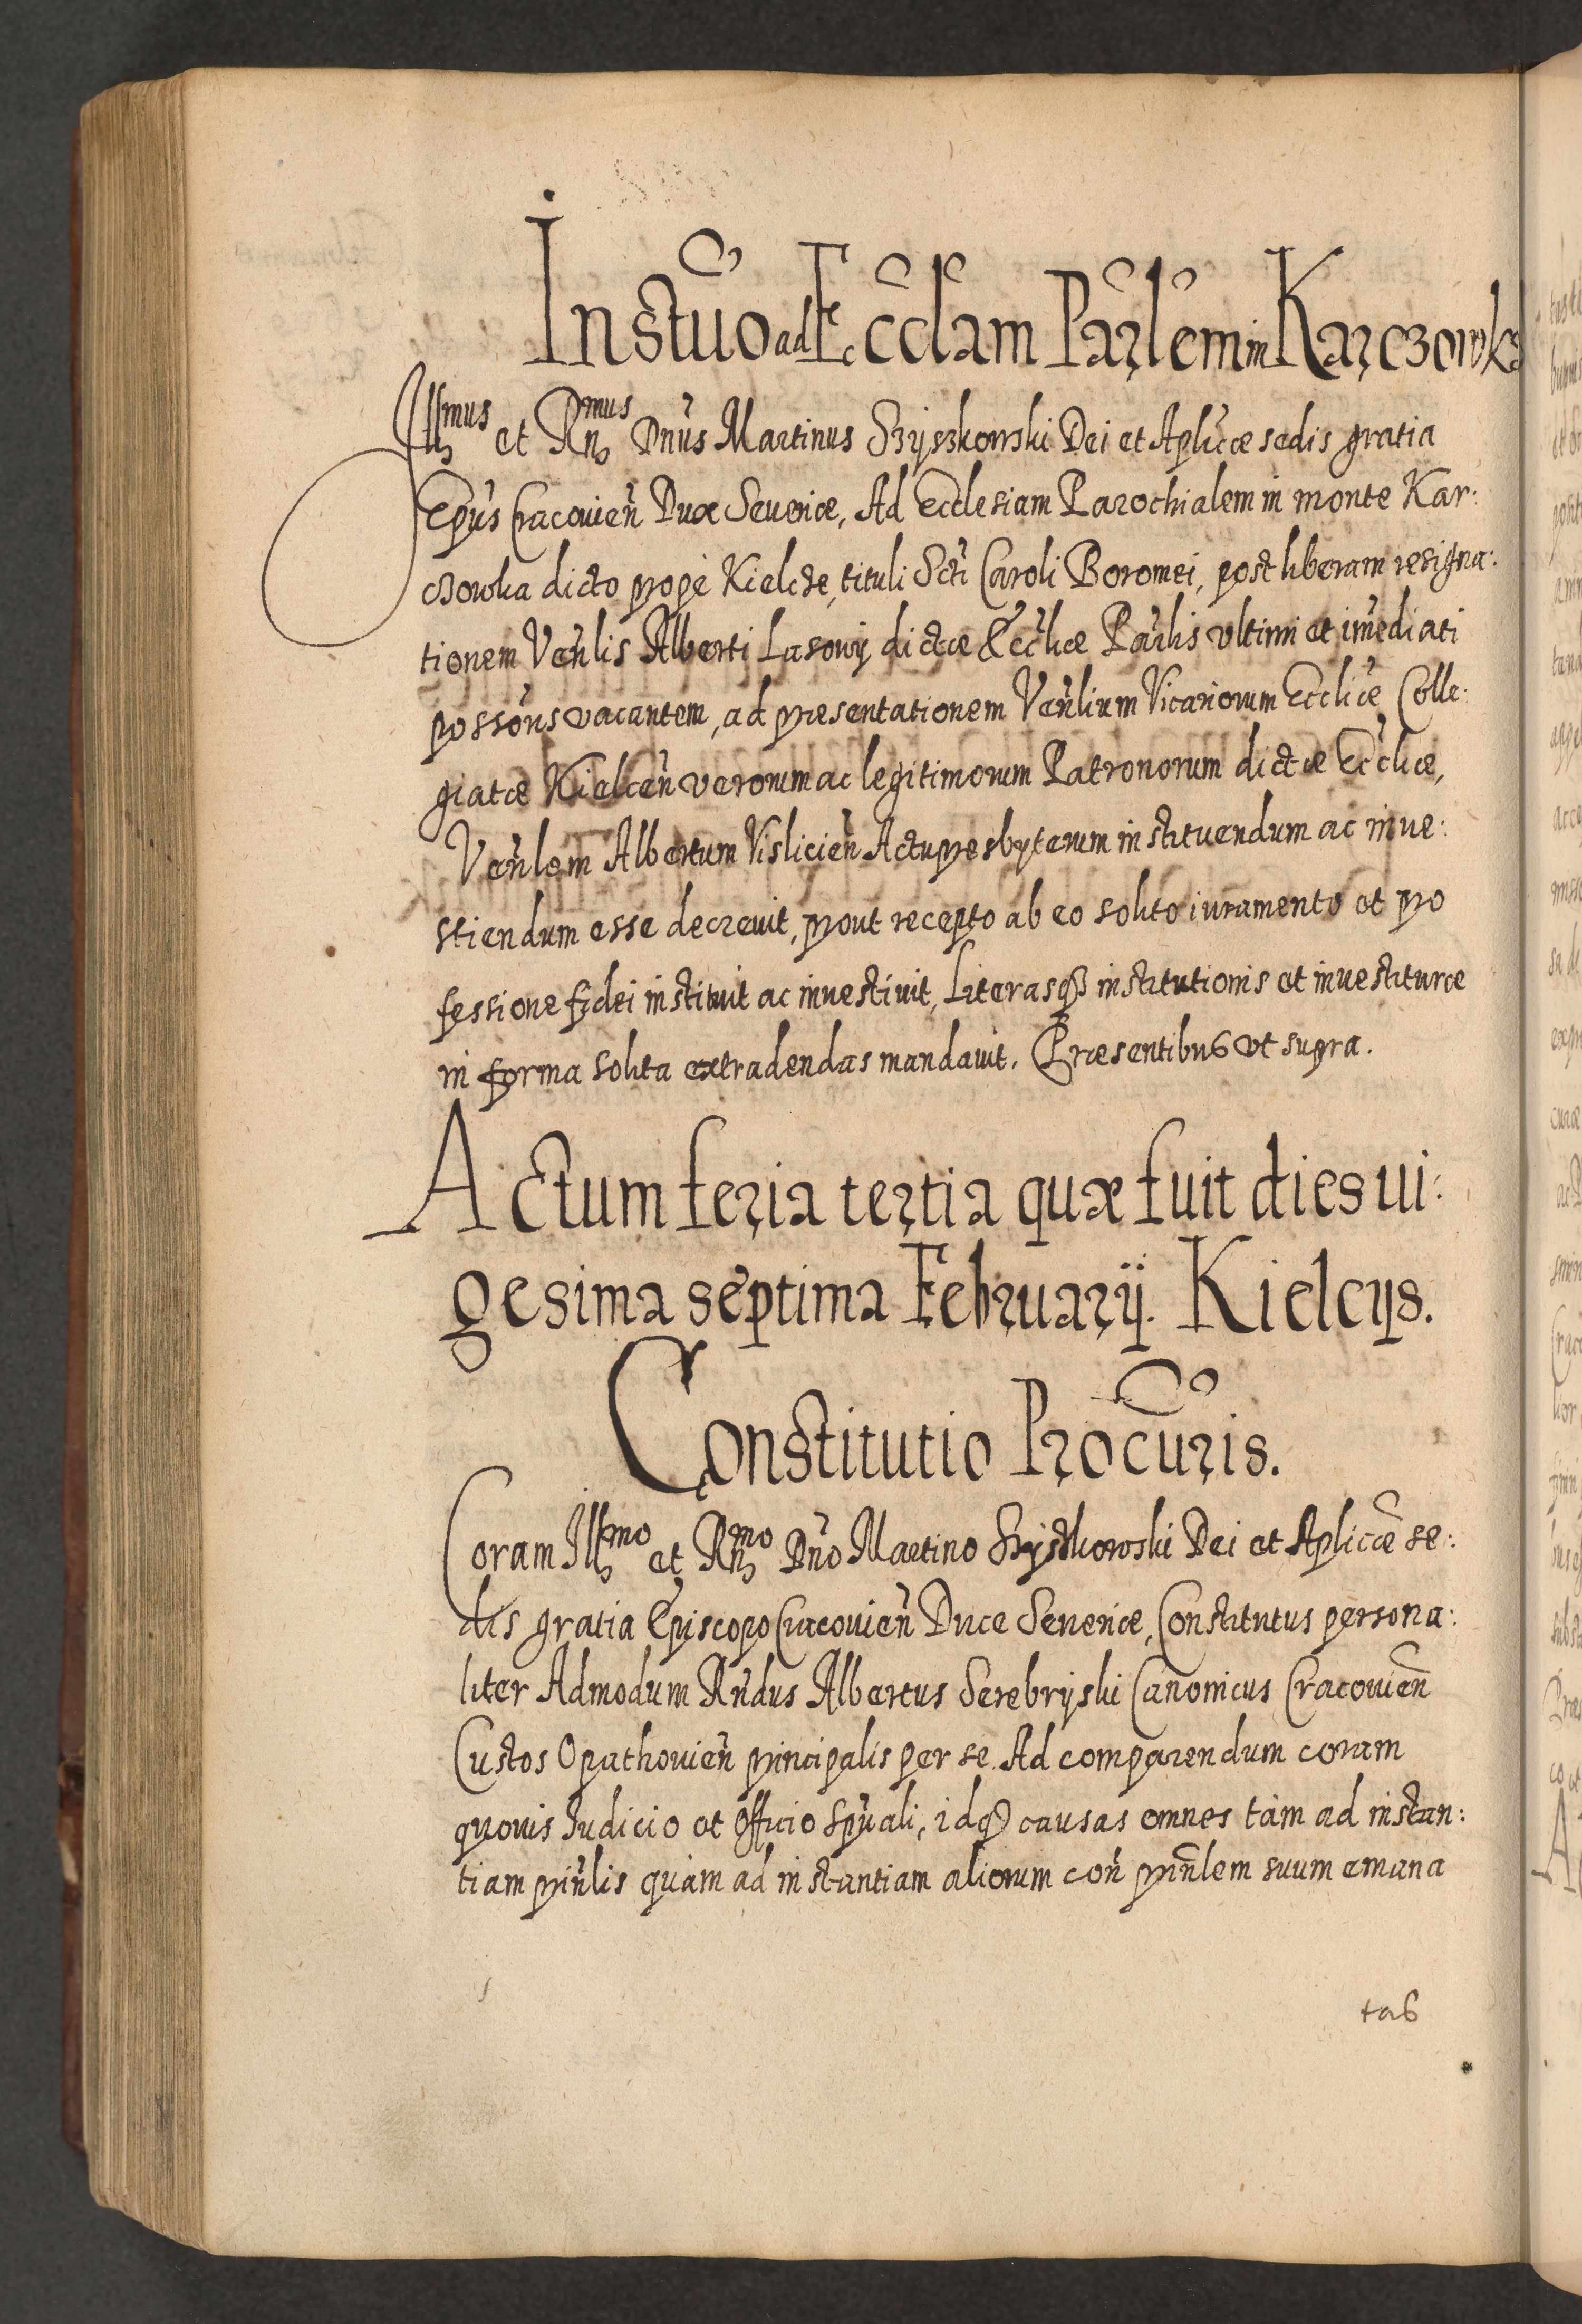 Instũo ad Eccl̃am Par̃lem in Karczowka
Ill:mus et Rn:mus Dnũs Martinus Szyszkowski Dei et Aplicæ sedis gratia
Epũs Cracovien̄ Dux Severiæ, Ad Ecclesiam Parochialem in monte Kar:
czowka dicto prope Kielcze, tituli Scti Caroli Boromei, post liberam resigna:
tionem Ven̄lis Alberti Lasowy dictæ Eccliæ Par̄lis vltimi et im̄ediati
possōris vacantem, ad præsentationem Ven̄lium Vicariorum Eccliæ Colle:
giatæ Kielcen̄ verorum ac legitimorum Patronorum dictæ Eccliæ,
Ven̄lem Albertum Vislicien̄ Actupresbyterum instituendum ac inue:
stiendum esse decreuit, prout recepto ab eo solito iuramento et pro
fessione fidei instituit ac inuestiuit, Literasq3 institutionis et inuestituræ
in forma solita extradendas mandauit. Præsentibus vt supra.
Actum feria tertia quæ fuit dies ui:
gesima septima Februarij. Kielcijs.
Constitutio Procũris.
Coram Ill:mo et Rn:mo Dn̄o Martino Szyszkowski Dei et Aplicæ se:
dis gratia Episcopo Cracouien̄ Duce Seueriæ, Constitutus persona:
liter Admodum Rn̄dus Albertus Serebryski Canonicus Cracouien̄
Custos Opathouien̄ principalis per se. Ad comparendum coram
quouis Iudicio et Officio Spũali, idq3 causas omnes tàm ad instan:
tiam prin̄lis quàm ad instantiam aliorum con̄ prin̄lem suum emana
tas